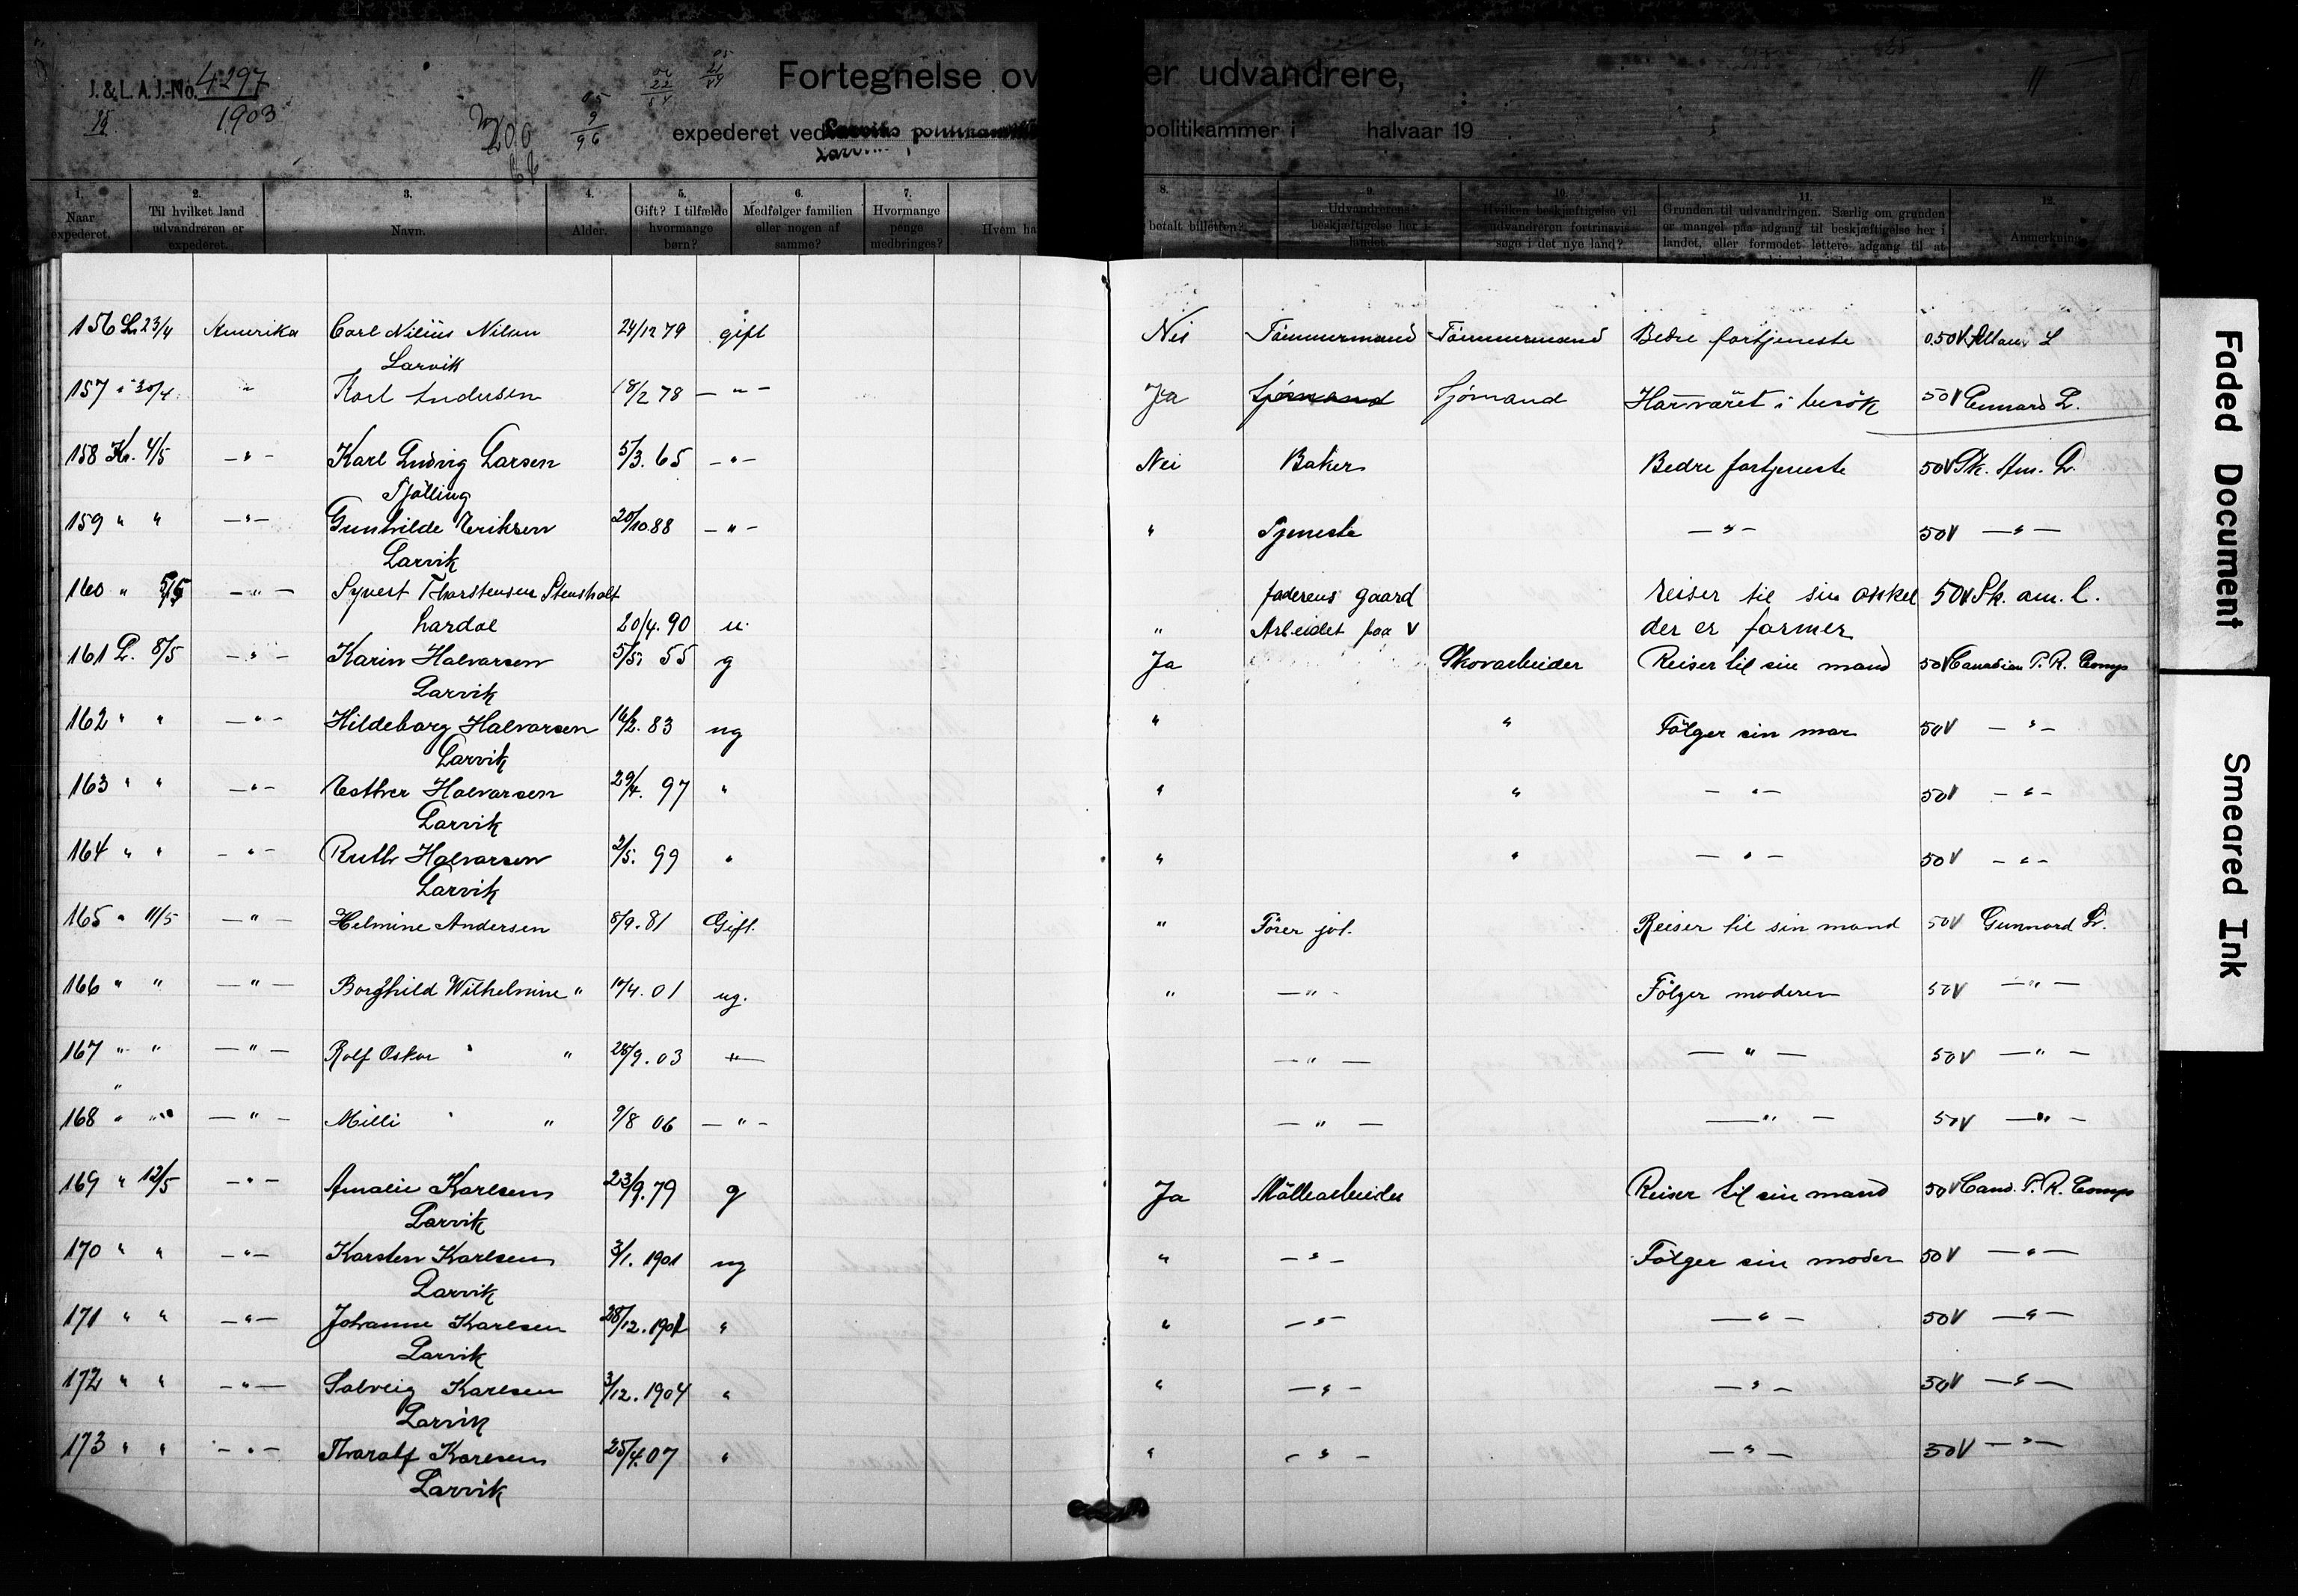 J. & L. A. J.-No. 4297
1903
Fortegnelse over udvandrere,
expederet ved Larviks politikammer i halvaar 19
1. Naar expederet.
2. Til hvilket land udvandreren er expederet.
3. Navn.
4. Alder.
5. Gift? I tilfælde hvormange børn?
6. Medfølger familien eller nogen af samme?
7. Hvormange penge medbringes?
8. Hvem ha betalt billetten?
9. Udvandrerens beskjæftigelse her i landet.
10. Hvilken beskjæftigelse vil udvandreren fortrinsvis søge i det nye land?
11. Grunden til udvandringen. Særlig om grunden er mangel paa adgang til beskjæftigelse her i landet, eller formodet lettere adgang til at
12. Anmerkning.
156 L. 23/4 Amerika Carl Nilius Nilsen 24/12 79 gift Nei Tömmermand Tömmermand Bedre fortjeneste 0.50 V Allan L
Larvik
157 " 30/4 " Karl Andersen 18/2 78 — " — Ja Sjömand Sjömand Har väret i besök 50 V Cunard L.
158 Kr. 4/5 — " — Karl Ludvig Larsen 5/3. 65 — " — Nei Baker Bedre fortjeneste 50 V Sk. Am. L.
Tjölling
159 " " — " — Gunhilde Eriksen 20/10 88 — " — " Tjeneste — " — 50 V — " —
Larvik
160 " 5/5 — " — Syvert Thorstensen Stensholt faderens gaard reiser til sin onkel 50 V Sk. am. l.
Lardal 20/4. 90 u. " Arbeidet paa V der er farmer
161 L. 8/5 — " — Karin Halvarsen 5/5. 55 g Ja Skovarbeider Reiser til sin mand 50 V Canadian P. R. Comp
Larvik
162 " " — " — Hildeborg Halvorsen 16/2. 83 ug " " Fölger sin mor 50 V — " —
Larvik
163 " " — " — Esther Halvarsen 29/4. 97 " " " — " — 50 V — " —
Larvik
164 " " — " — Ruth Halvarsen 2/5. 99 " " " — " — 50 V — " —
Larvik
165 " 11/5 — " — Helmine Andersen 8/9. 81 Gift. " Förer jvt. Reiser til sin mand 50 V Gunnard L.
166 " " — " — Borghild Wilhelmine " 14/4. 01 ug. " — " — Fölger moderen 50 V — " —
167 " " — " — Rolf Oskar " " 28/9. 03 — " — — " — — " — 50 V — " —
"
168 " " — " — Milli " " 9/8 06 — " — — " — — " — 50 V — " —
169 " 12/5 — " — Amalie Karlsen 23/9. 79 g Ja Möllearbeider Reiser til sin mand 50 V Cand. P. R. Comp
Larvik
170 " " — " — Karsten Karlsen 3/1. 1901 ug " — " — Fölger sin moder 50 V — " —
Larvik
171 " " — " — Johanne Karlsen 28/12. 1901 " " — " — — " — 50 V — " —
Larvik
172 " " — " — Solveig Karlsen 3/12. 1904 " " — " — — " — 50 V — " —
Larvik
173 " " — " — Tharalf Karlsen 25/4. 07 " " — " — — " — 50 V — " —
Larvik
Faded Document
Smeared Ink